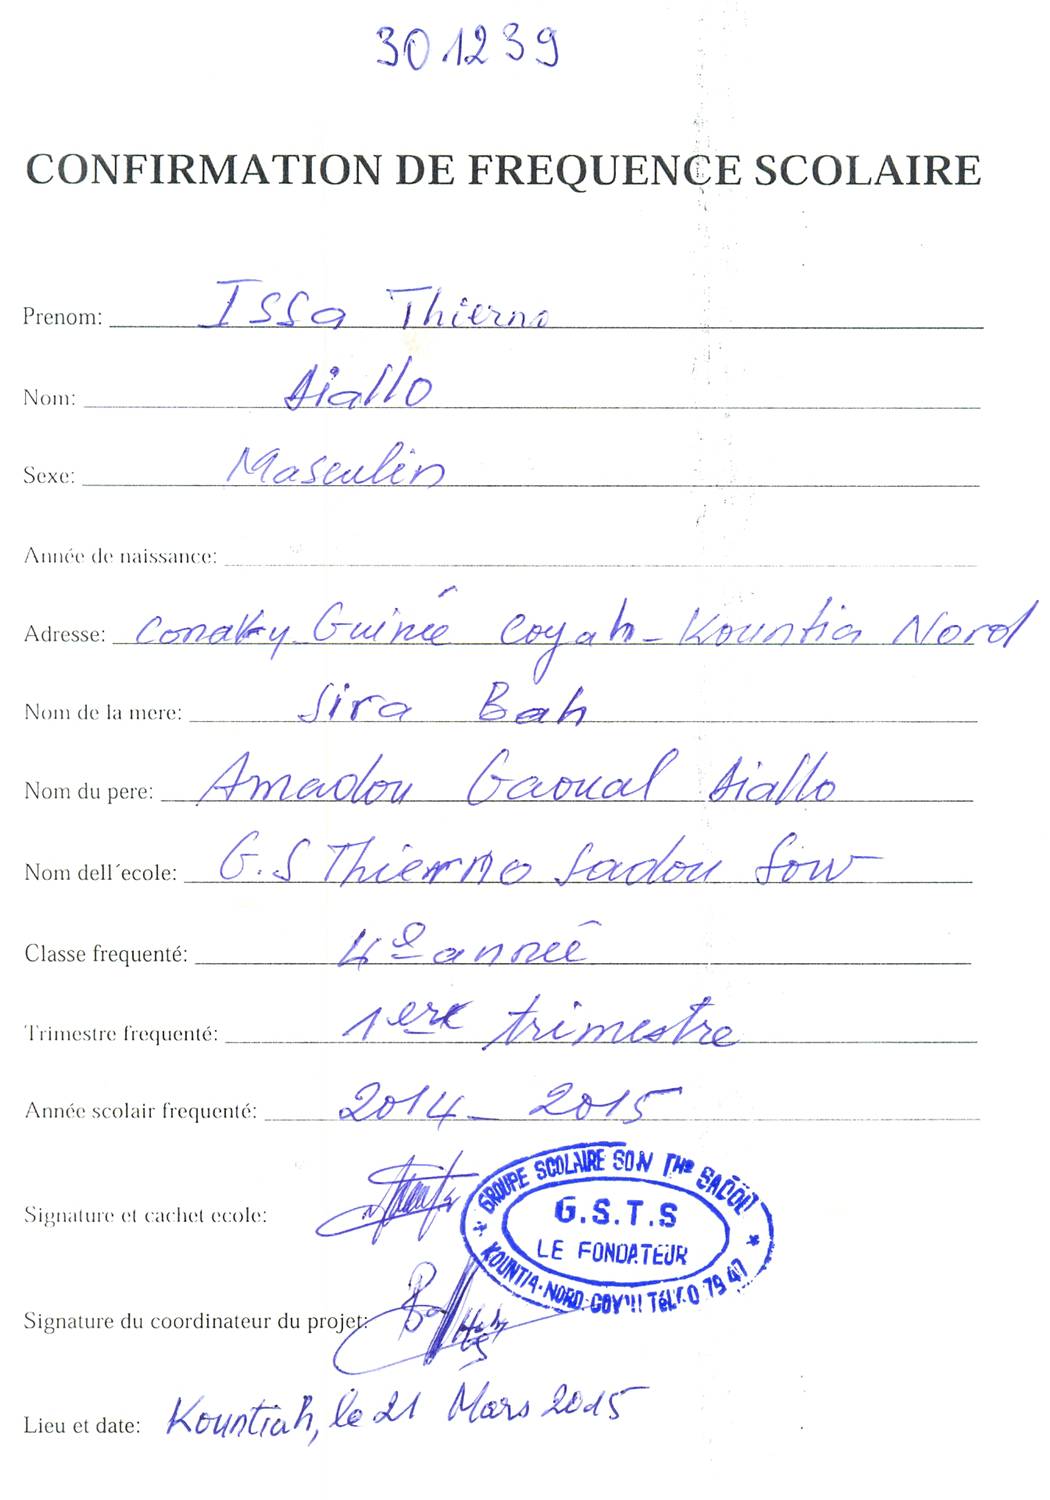 301239
CONFIRMATION DE FREQUENCE SCOLAIRE
Prenom: Issa Thierno
Nom: Diallo
Sexe: Masculin
Année de naissance:
Adresse: Conakry Guinée Coyah-Kountia Nord
Nom de la mere: Sira Bah
Nom du pere: Amadou Gaoual Diallo
Nom dell´ecole: G.S Thierno Sadou Sow
Classe frequenté: 4e année
Trimestre frequenté: 1ere trimestre
Année scolair frequenté: 2014-2015
Signature et cachet ecole:
GROUPE SCOLAIRE SON THE SADOU
G.S.T.S
LE FONDATEUR
KOUNTIA-NORD 79 47
Signature du coordinateur du projet:
Lieu et date: Kountiah, le 21 Mars 2015